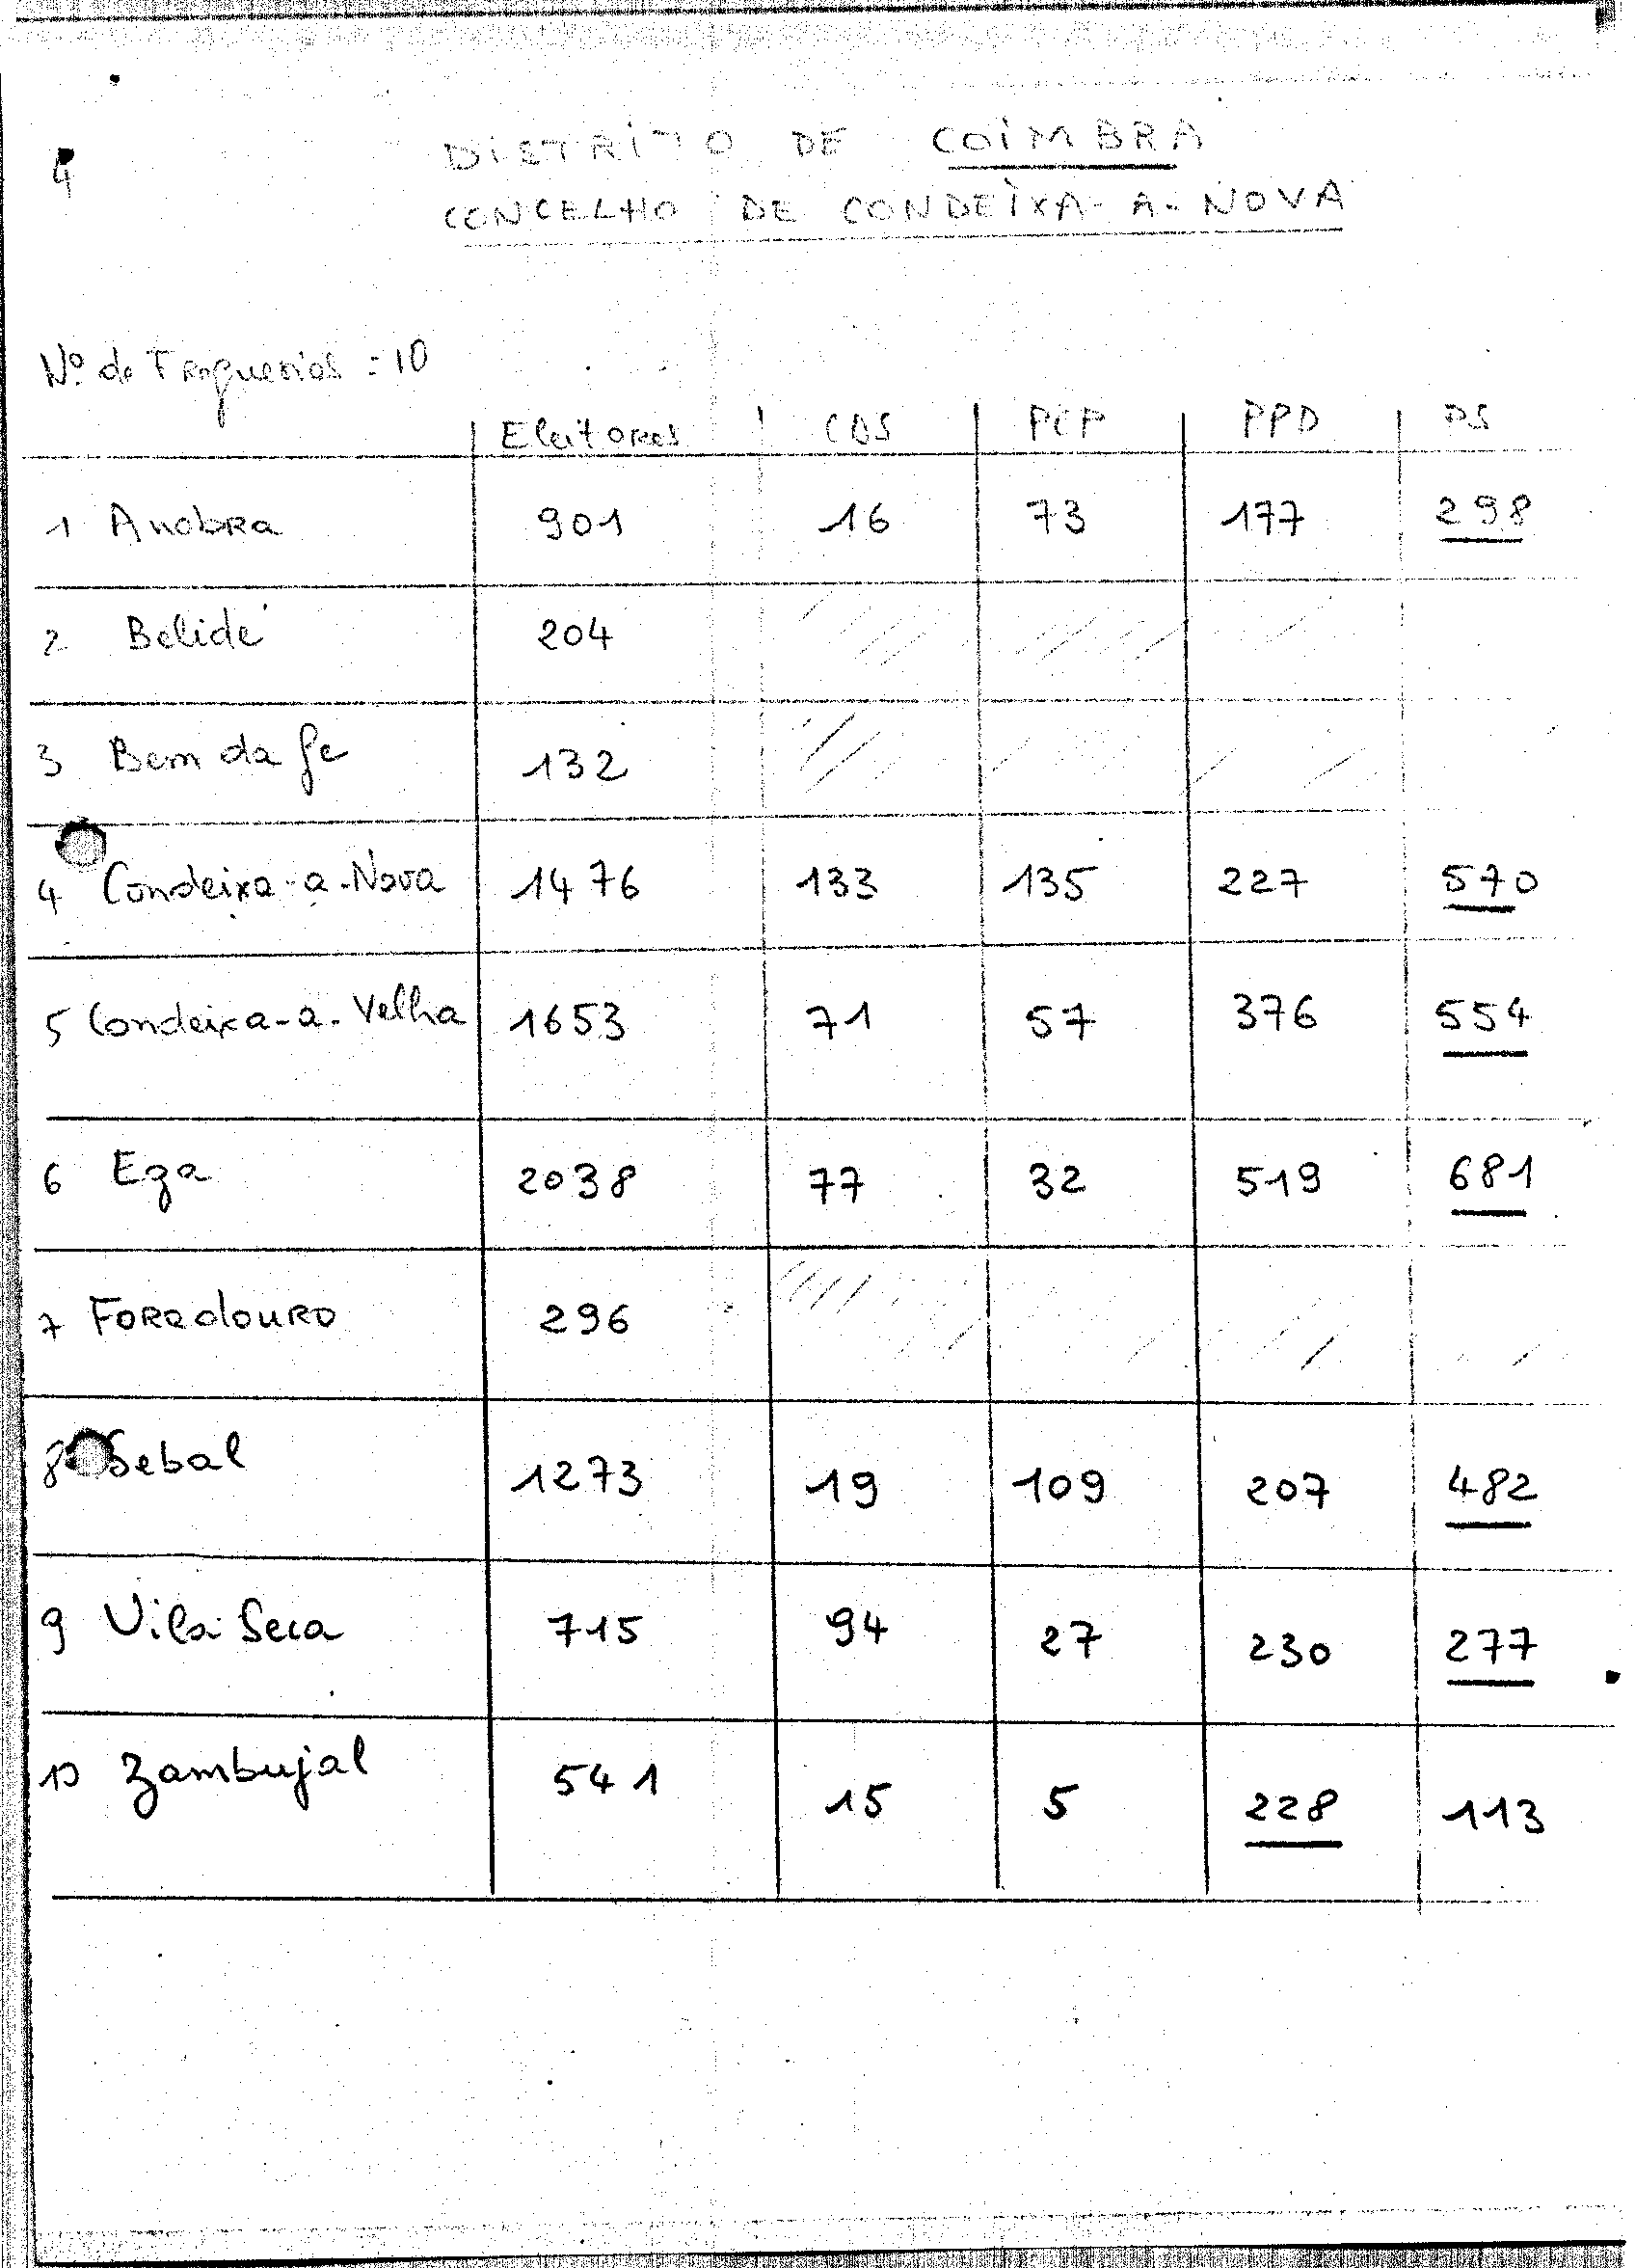 4
DISTRITO DE COIMBRA
CONCELHO DE CONDEIXA-A-NOVA
Nº de Freguesias = 10
Eleitores CDS PCP PPD PS
1 Anobra 901 16 73 177 298
2 Belide 204
3 Bem da fe 132
4 Condeixa-a-Nova 1476 133 135 227 570
5 Condeixa-a-Velha 1653 71 57 376 554
6 Ega 2038 77 32 519 681
7 Foradouro 296
8 Sebal 1273 19 109 207 482
9 Vila Seca 715 94 27 230 277
10 Zambujal 541 15 5 228 113